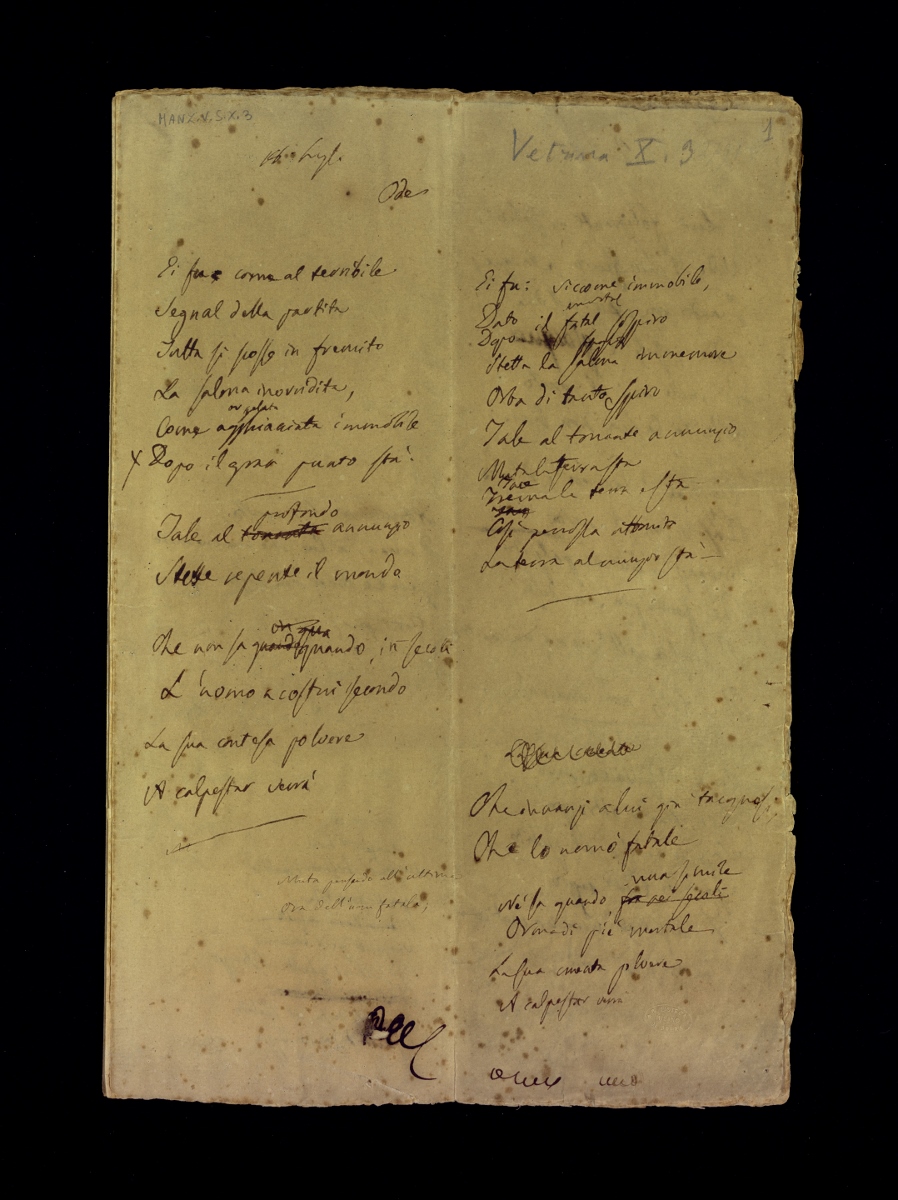 MANZ.V.S.X.3
Ode
Ei fu come al terribile
Segnal della partita
Tutta si scosse in fremito
La salma inorridita,
or gelata
Come agghiacciata immobile
X Dopo il gran punto stà.
profondo
Tale al tonante annunzio
Stette repente il mondo
Che non sa quando quando, in secoli
L'uomo a costui secondo
La sua contesa polvere
A calpestar verrà
Muta pensando all'ultima
ora dell'uom fatale,
Vetrina X. 3
1
Ei fu: siccome immobile,
mortal
Dato il fatal sospiro
Dopo
Stette la salma immemore
Orba di tanto spiro
Tale al tonante annunzio
Muta la terra sta
Trema la terra e sta
Così percossa attonita
La terra al nunzio stà
Che innanzi a lui già tacque,
Che lo nomò fatale
una simile
Nè sa quando fra sei secoli
Orma di piè mortale
La sua cruenta polvere
A calpestar verrà